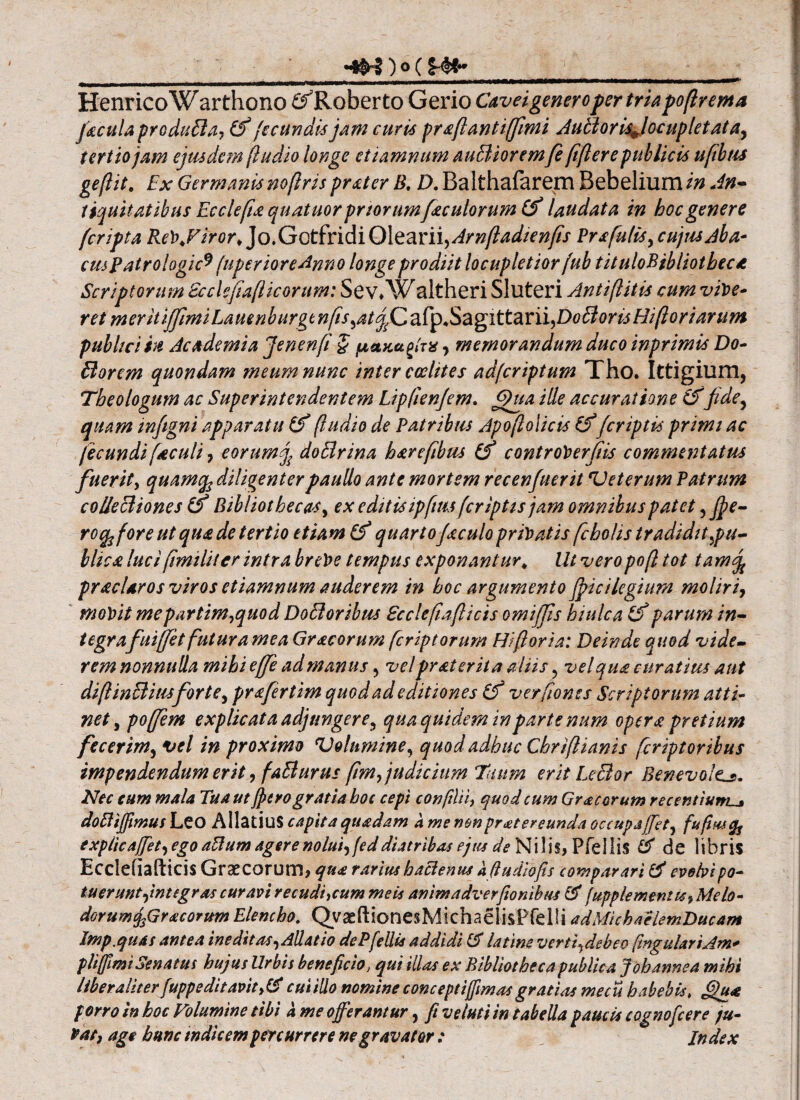 )o(
HenricoWarthono &Roberto Gerio Caveigeneroper tria postrema
sæcula producta, & secundis jam curis præstantissimi Auctoris locupletata,
tertio jam ejusdem studio longe etiamnum auctiorem se sistere publicis usibus
gestit. Ex Germanis nostris præter B. D. Balthasarem Bebelium in An-
tiquitatibus Ecclesiæ quatuor priorum sæculorum & laudata in hoc genere
scripta Rev. Viror. Jo.Gotfridi Olearii, Arnstadiensis Præsulis, cujus Aba-
cus Patrologic⁹ superiore Anno longe prodiit locupletior sub titulo Bibliothecæ
Scriptorum Ecclesiasticorum: Sev. Waltheri Sluteri Antistitis cum vive-
ret meritissimi Lauenburgensis, atq; Casp. Sagittarii, Doctoris Historiarum
publici in Academia Jenensi ϟ μακαρίτȣ, memorandum duco inprimis Do-
ctorem quondam meum nunc inter cœlites adscriptum Tho. Ittigium,
Theologum ac Superintendentem Lipsiensem. Qua ille accuratione & fide,
quam insigni apparatu & studio de Patribus Apostolicis & scriptis primi ac
secundi sæculi, eorumq; doctrina hæresibus & controversiis commentatus
fuerit, quamq; diligenter paullo ante mortem recensuerit Veterum Patrum
collectiones & Bibliothecas, ex editis ipsius scriptis jam omnibus patet, spe-
roq; fore ut quæ de tertio etiam & quarto sæculo privatis scholis tradidit, pu-
blicæ luci similiter intra breve tempus exponantur. Ut vero post tot tamq;
præclaros viros etiamnum auderem in hoc argumento spicilegium moliri,
movit me partim, quod Doctoribus Ecclesiasticis omissis hiulca & parum in-
tegra fuisset futura mea Græcorum scriptorum Historia: Deinde quod vide-
rem nonnulla mihi esse ad manus, vel præterita aliis, vel quæ curatius aut
distinctius forte, præsertim quod ad editiones & versiones Scriptorum atti-
net, possem explicata adjungere, qua quidem in parte num operæ pretium
fecerim, vel in proximo Volumine, quod adhuc Christianis scriptoribus
impendendum erit, facturus sim, judicium Tuum erit Lector Benevole.
Nec eum mala Tua ut spero gratia hoc cepi consilii, quod cum Græcorum recentium
doctissimus Leo Allatius capita quædam à me non prætereunda occupasset, fusiusq;
explicasset, ego actum agere nolui, sed diatribas ejus de Nilis, Psellis & de libris
Ecclesiasticis Græcorum, quæ rarius hactenus à studiosis comparari & evolvi po-
tuerunt, integras curavi recudi, cum meis animadversionibus & supplementis, Melo-
dorumq; Græcorum Elencho. Qvæstiones Michaëlis Pselli ad Michaëlem Ducam
Imp. quas antea ineditas, Allatio de Psellis addidi & latine verti, debeo singulari Am-
plissimi Senatus hujus Urbis beneficio, qui illas ex Bibliotheca publica Johannea mihi
liberaliter suppeditavit, & cui illo nomine conceptissimas gratias mecū habebis. Quæ
porro in hoc Volumine tibi à me offerantur, si veluti in tabella paucis cognoscere ju-
vat, age hunc indicem percurrere ne gravator:
Index